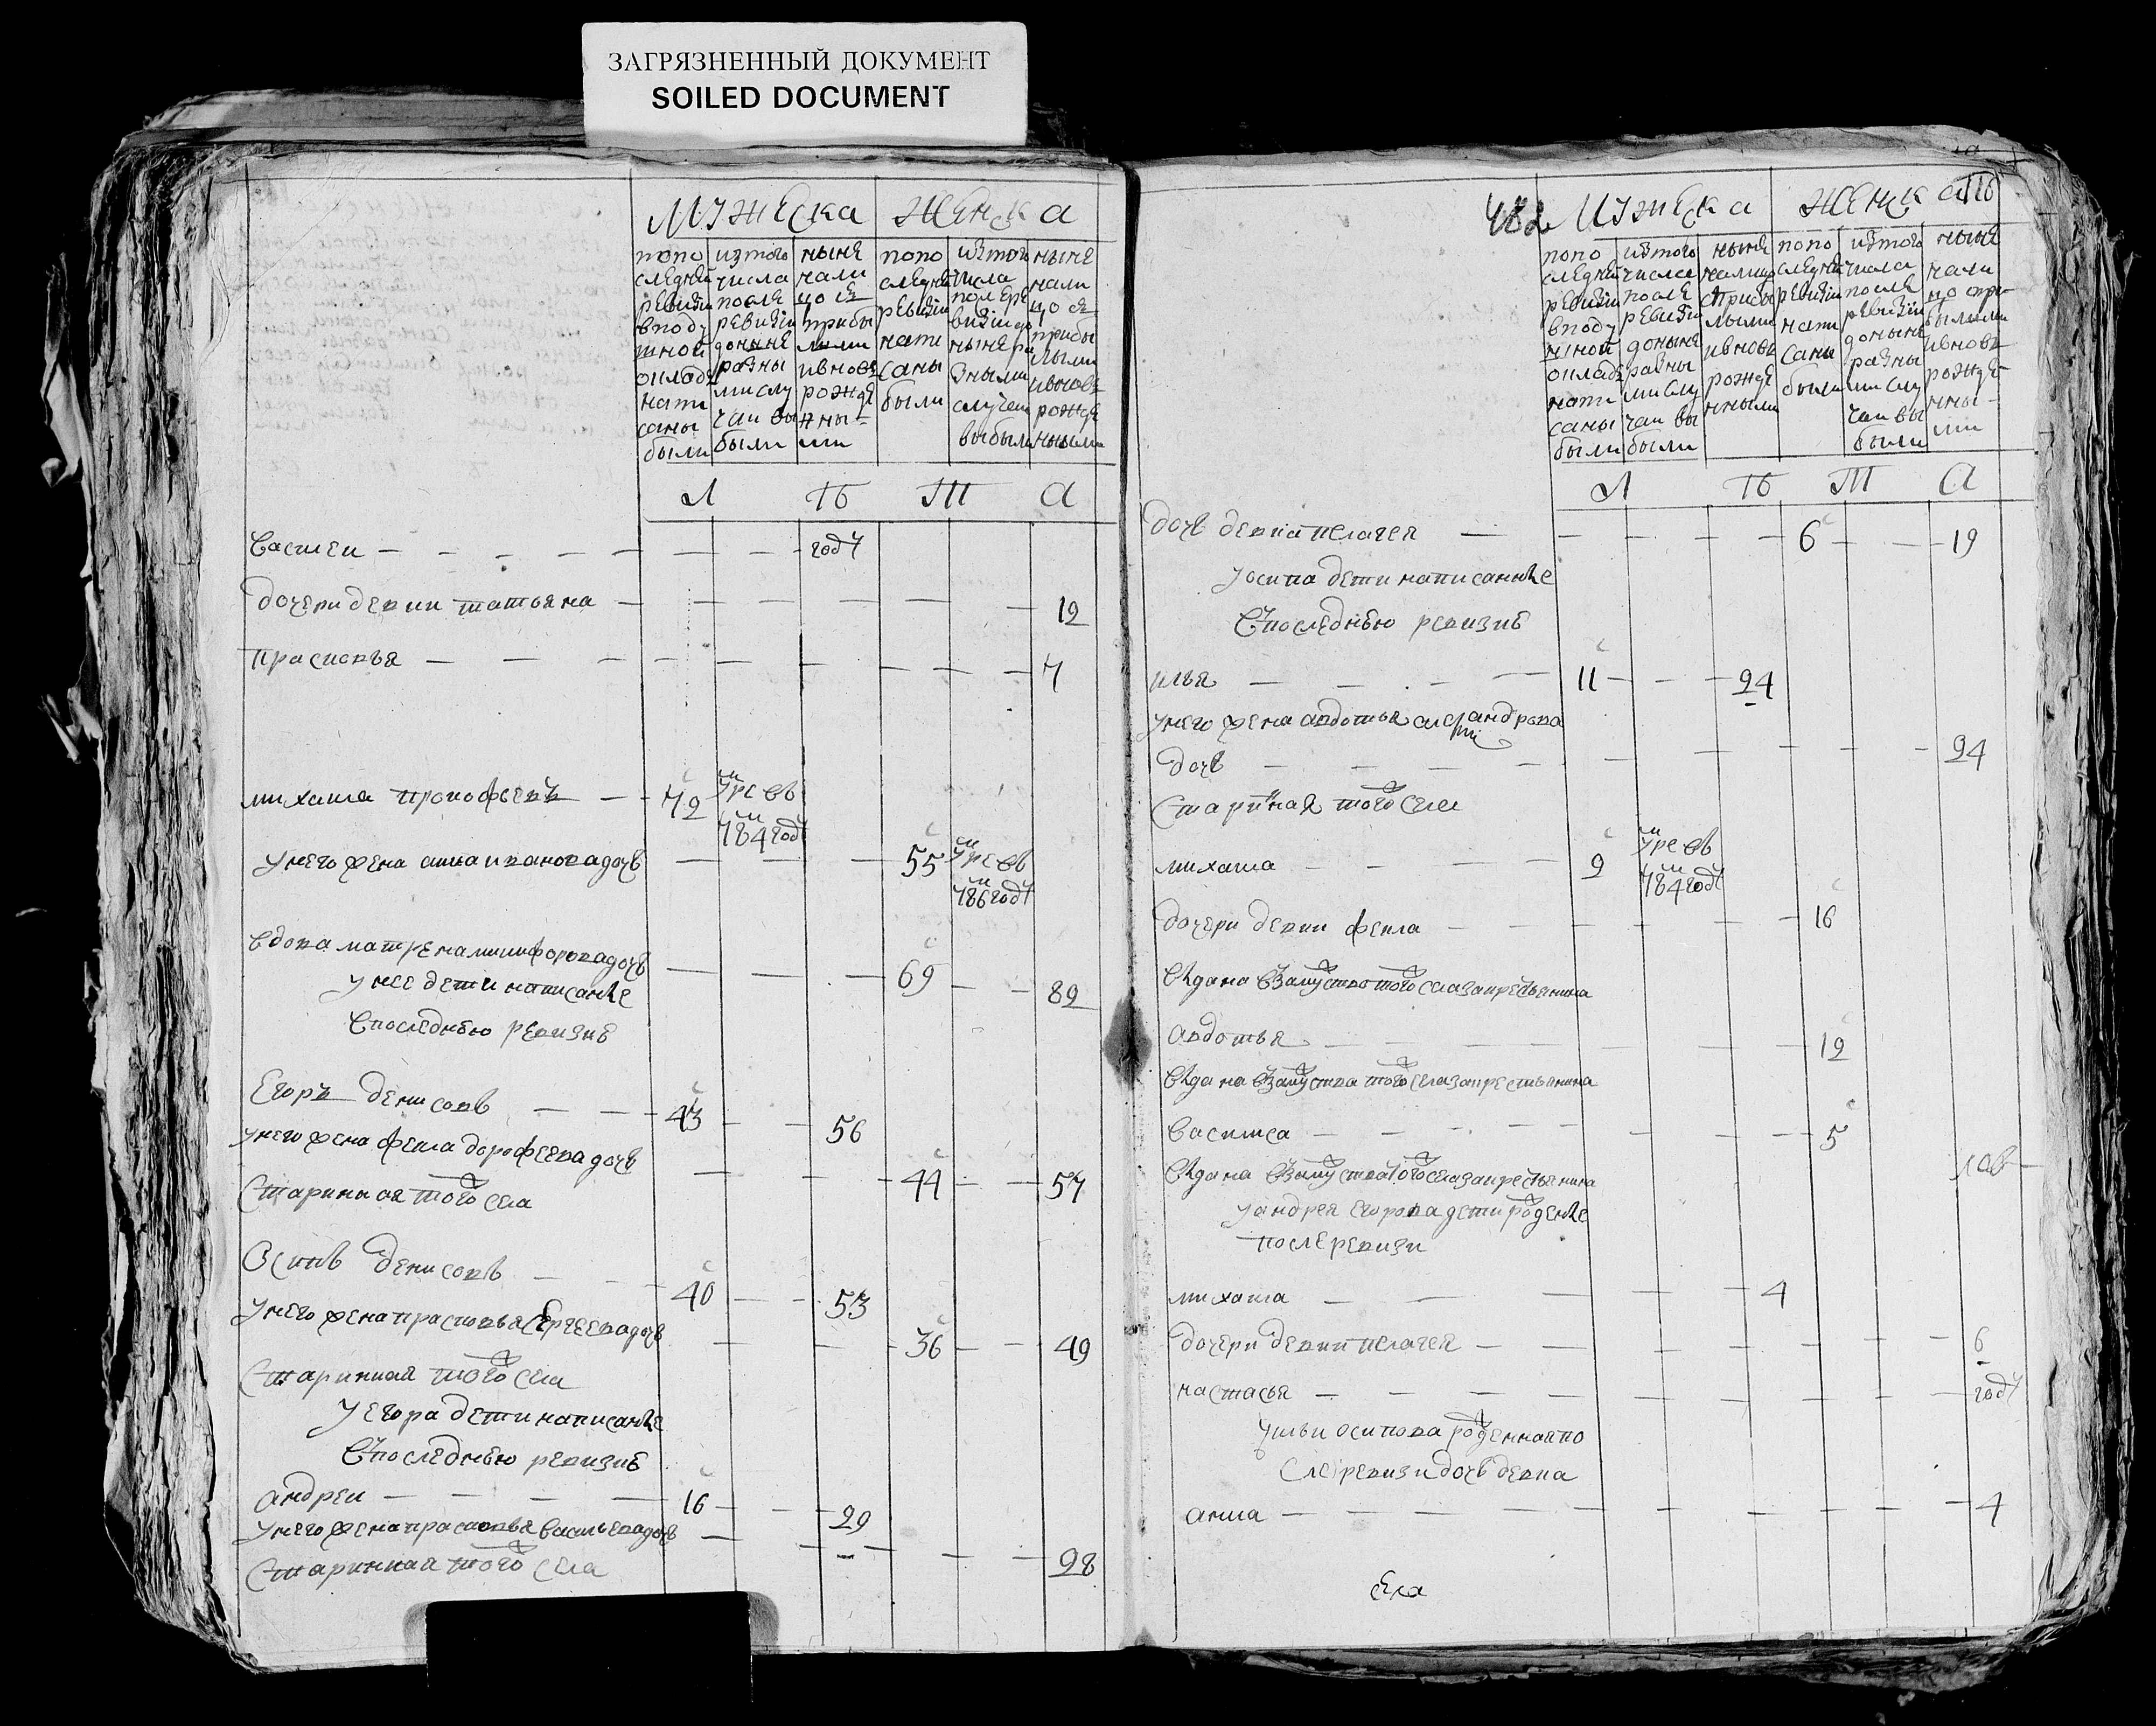 ЗАГРЯЗНЕННЫЙ ДОКУМЕНТ
SOILED DOCUMENT
Мужеска Женска
попо следней ревизии вподу шной окладъ написаны были
изтого числа после ревизии доныне разны ми слу чаи вы были
ныне нали цо съ прибы лыми ивновъ рожде нны ми
попо следней ревизии напи саны были
изтого числа после ревизии до ныне ра зными случаи выбыли
ныне нали цо съ прибы лыми ивновъ рожде нными
Л Ѣ Т А
василеи году
дочери девки татьяна 12
прасковья 7
михаила прокофьевъ 72 умре въ 784 году
унего жена анна иванова дочь 55 умре въ 786 году
вдова матрена никифорова дочь 69 82
унее дети написание
впоследнюю ревизию
Егоръ денисовъ 43 56
унего жена фекла дорофеева дочь
44 57
старинная того села
Осипъ денисовъ 40 53
унего жена прасковья Сергеева дочь
36 49
старинная того села
уегора дети написание
впоследнюю ревизию
андреи 16 29
унего жена прасковья васильева дочь
28
старинная того села
482 Мужеска Женска
попо следней ревизии вподу шной окладъ напи саны были
изтого числа после ревизии доныне разны ми слу чаи вы были
ныне налицо сприбы лыми ивновъ рожде нными
попо следней ревизии напи саны были
изтого числа после ревизии доныне разны ми слу чаи вы были
ныне нали цо спри былыми ивновъ рожде нны ми
Л Ѣ Т А
дочь девка пелагея 6 19
уосипа дети написание
впоследнюю ревизию
илья 11 24
унего жена авдотья александрова
дочь 24
старинная того села
михаила 9 умре въ 784 году
дочери девки фекла 16
выдана взамужство того села за крестьянина
авдотья 12
выдана взамужства того села за крестьянина
василиса 5
выдана взамужства того села за крестьянина
уандрея егорова дети рожденые
после ревизи
михаила 4
дочери девки пелагея 6
настасья году
уильи осипова рожденная по
сле ревизи дочь девка
анна 4